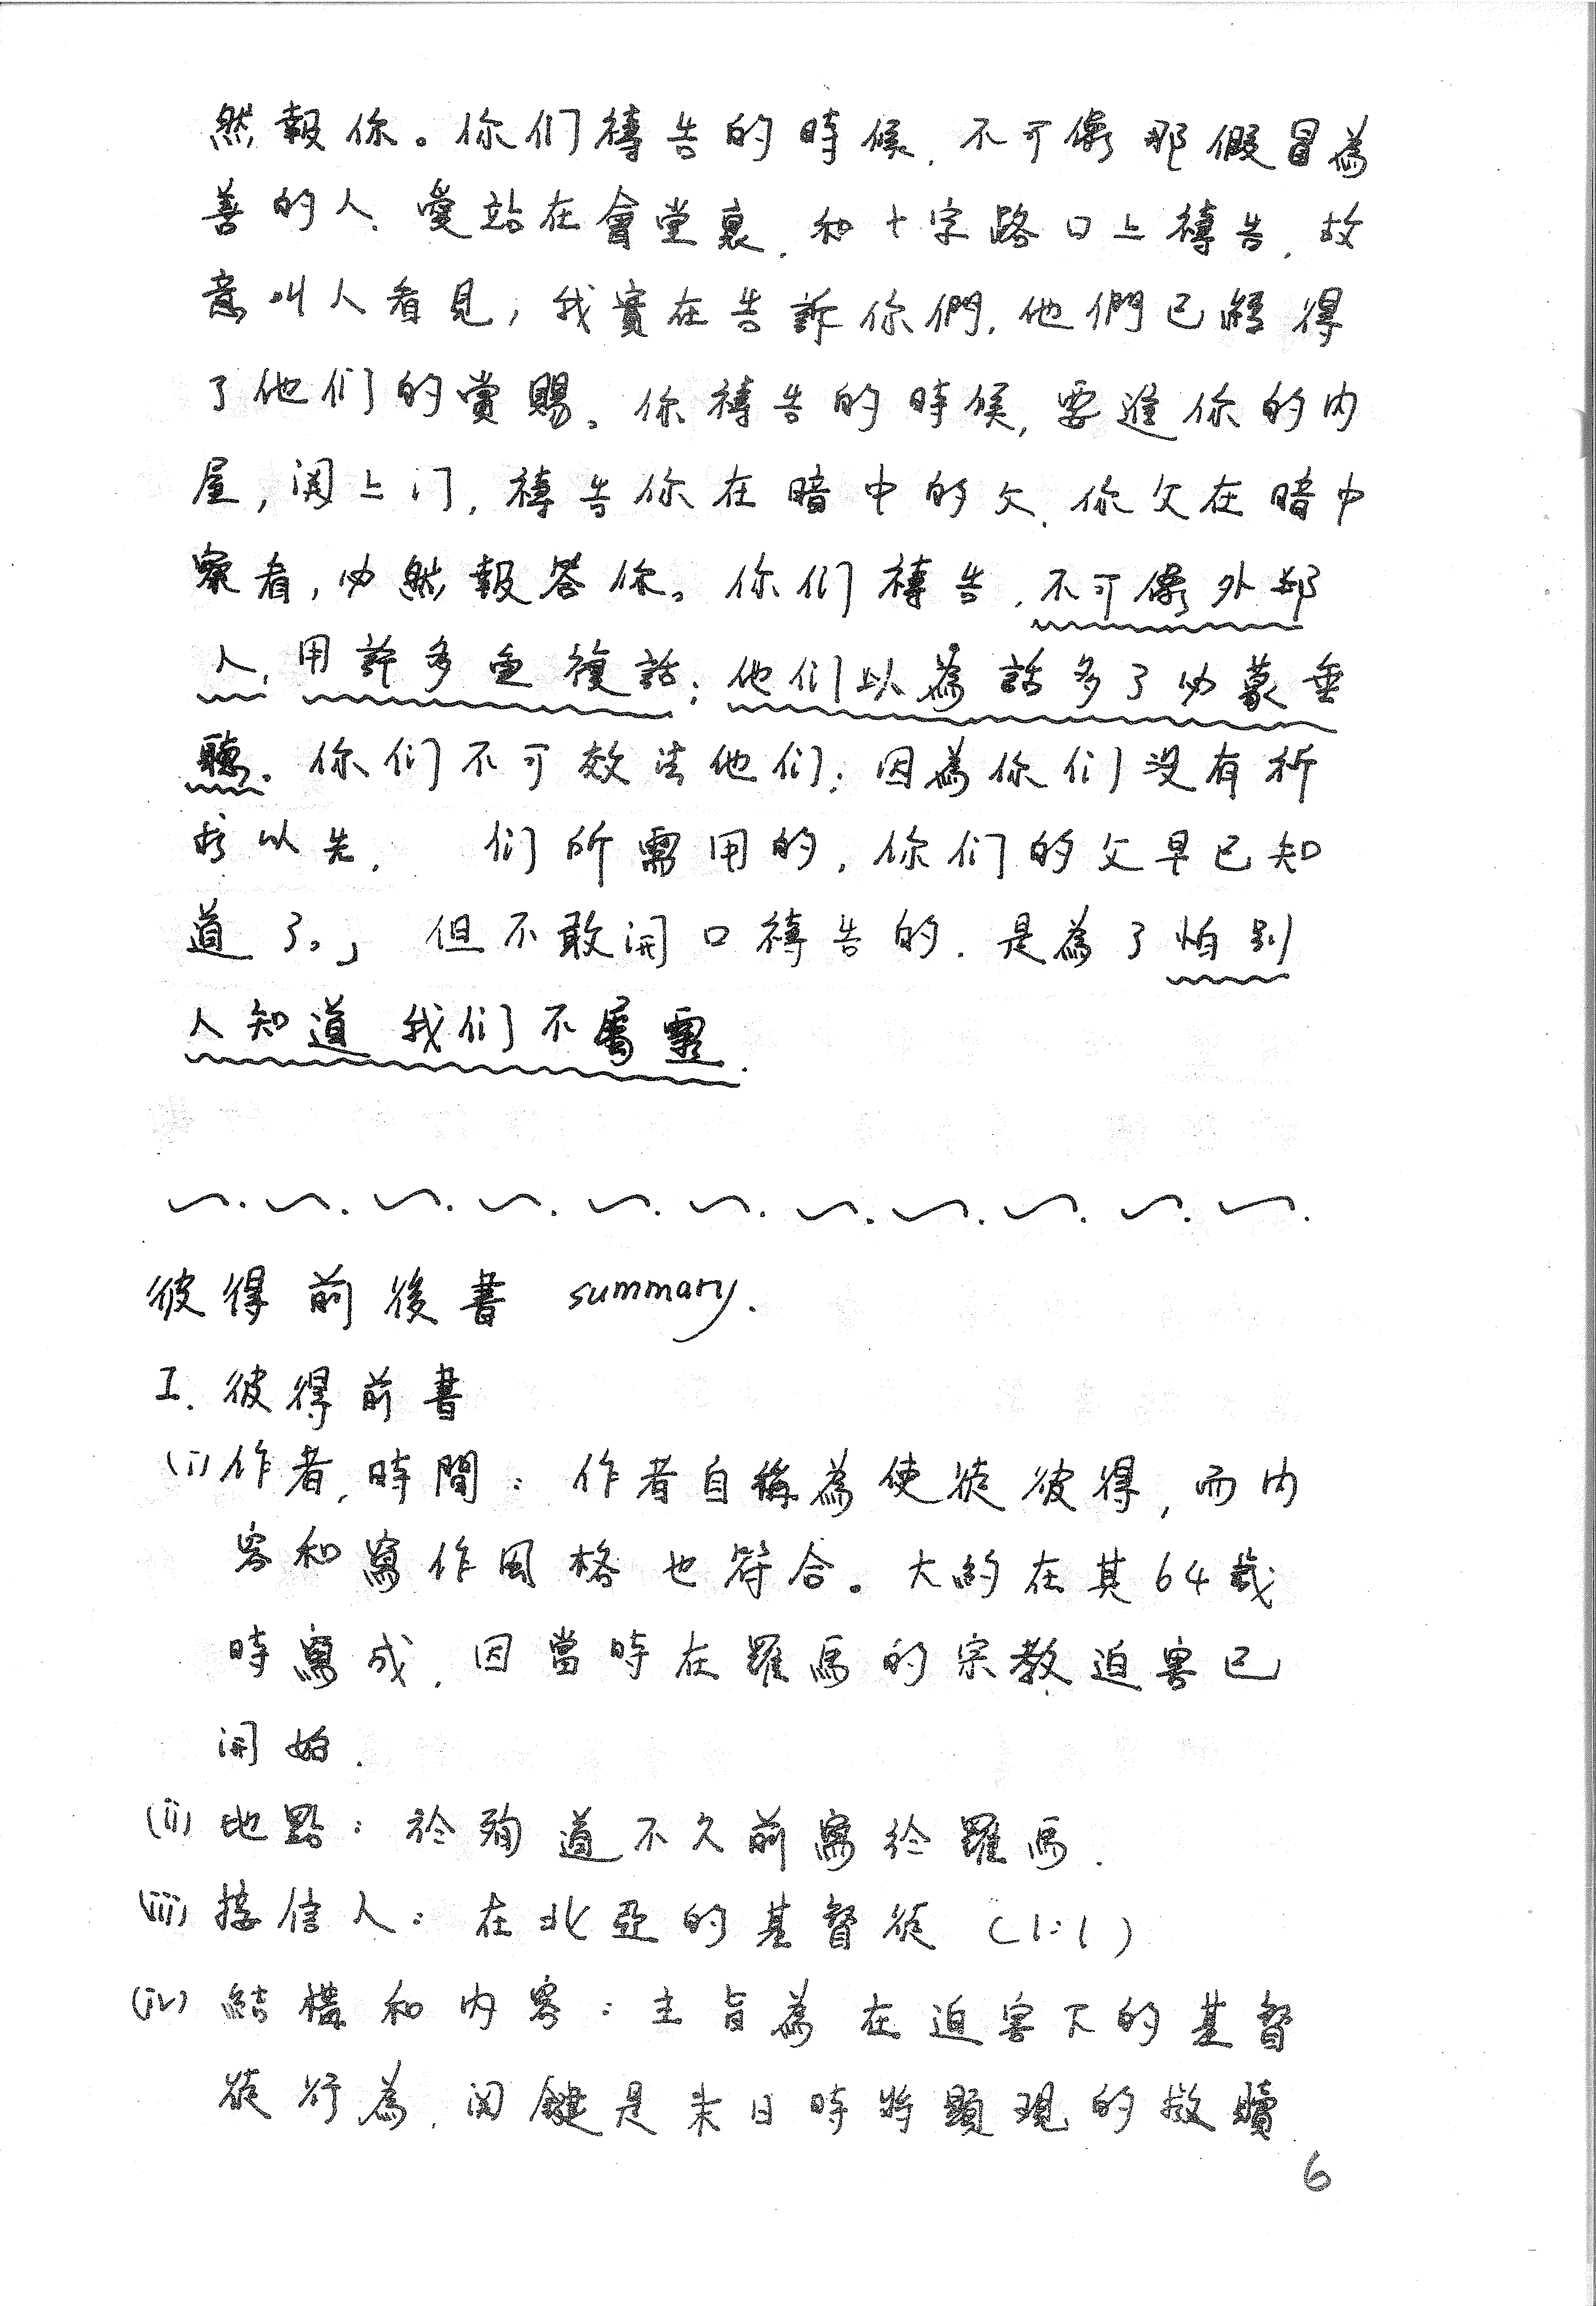 然報你。你们禱告的時候，不可像那假冒為
善的人，愛站在會堂裏，和十字路口上禱告，故
意叫人看見，我實在告訴你們，他們已經得
了他们的賞賜。你禱告的時候，要進你的內
屋，関上门，禱告你在暗中的父，你父在暗中
察看，必然報答你。你们禱告，不可像外邦
人，用許多重複話；他们以為話多了必蒙垂
聽。你们不可效法他们；因為你们沒有祈
求以先，们所需用的，你们的父早已知
道了。」但不敢開口禱告的，是為了怕別
人知道我们不屬靈．
彼得前後書 summary.
I. 彼得前書
(i) 作者，時間：作者自稱為使徒彼得，而內
容和寫作風格也符合。大約在其64歲
時寫成，因當時在羅馬的宗教迫害已
開始．
(ii) 地點：於殉道不久前寫於羅馬．
(iii) 接信人：在北亞的基督徒 (1:1)
(iv) 結構和內容：主旨為在迫害下的基督
徒行為，関鍵是末日時將顯現的救贖
6